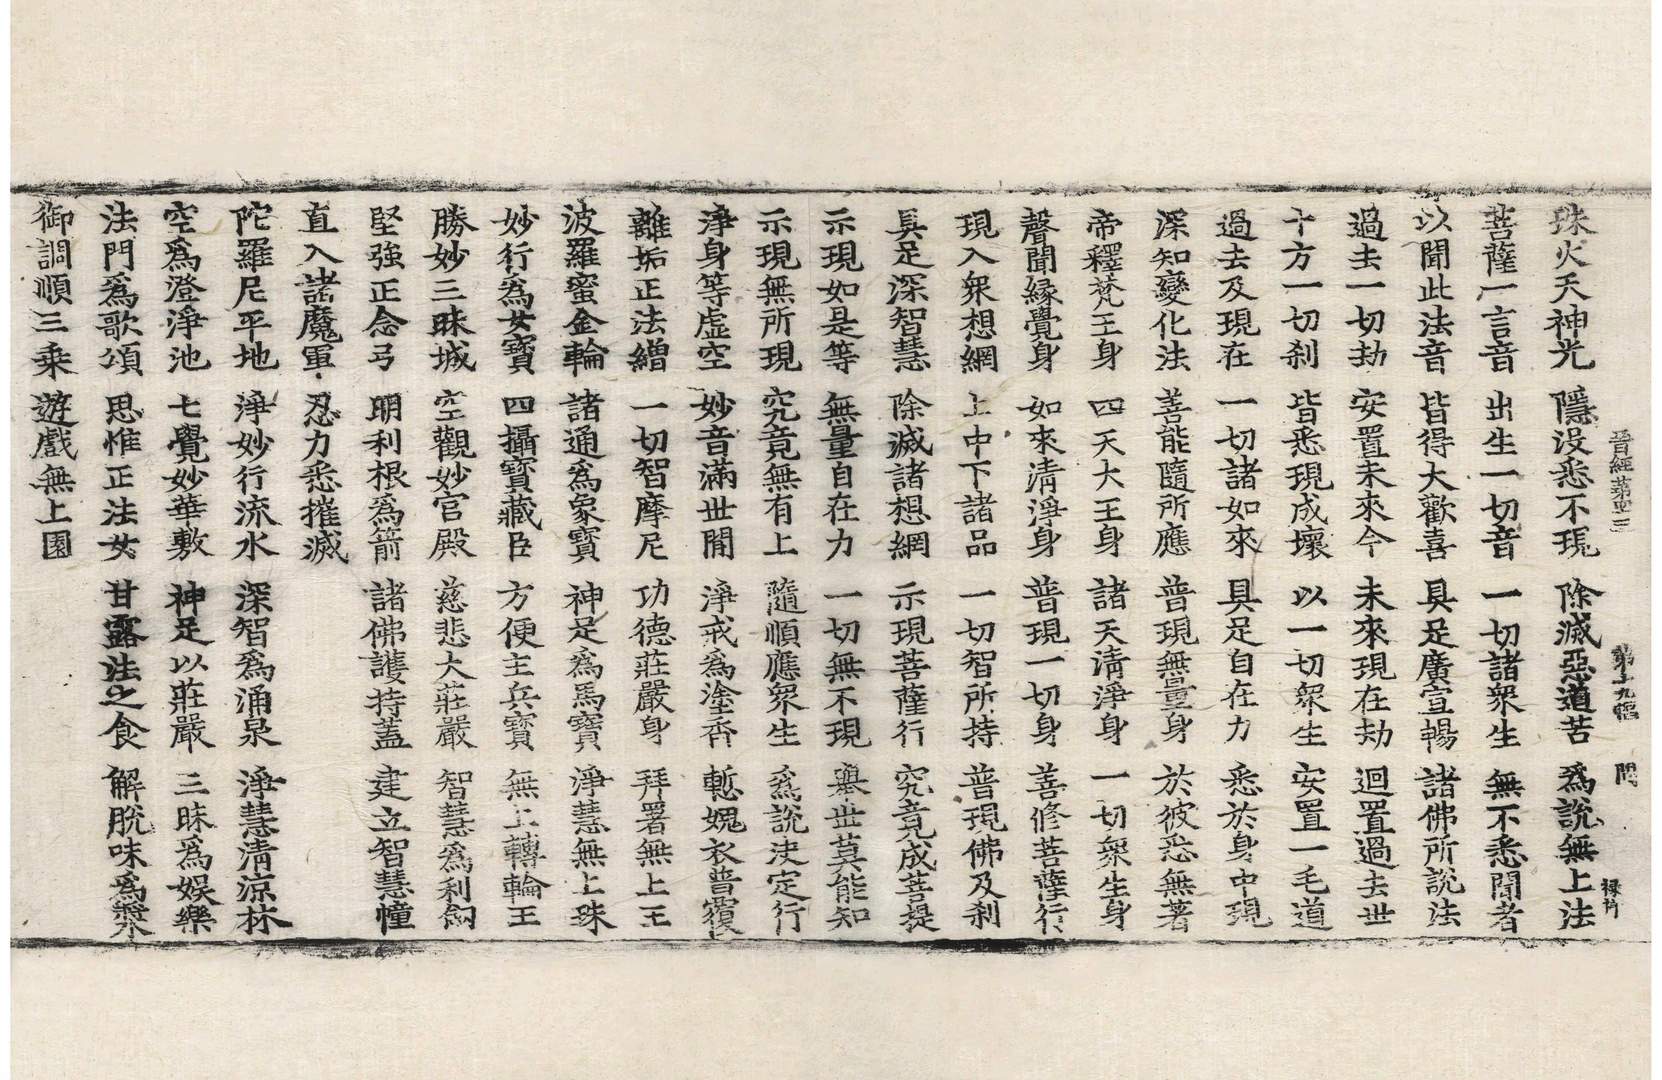 晉經第四三 第十九幅 問 祿行
珠火天神光 隱沒悉不現 除滅惡道苦 爲說無上法
菩薩一言音 出生一切音 一切諸衆生 無不悉聞者
以聞此法音 皆得大歡喜 具足廣宣暢 諸佛所說法
過去一切劫 安置未來今 未來現在劫 迴置過去世
十方一切刹 皆悉現成壞 以一切衆生 安置一毛道
過去及現在 一切諸如來 具足自在力 悉於身中現
深知變化法 善能隨所應 普現無量身 於彼悉無著
帝釋梵王身 四天大王身 諸天淸淨身 一切衆生身
聲聞縁覺身 如來淸淨身 普現一切身 善修菩薩行
現入衆想網 上中下諸品 一切智所持 普現佛及刹
具足深智慧 除滅諸想網 示現菩薩行 究竟成菩提
示現如是等 無量自在力 一切無不現 擧世莫能知
示現無所現 究竟無有上 隨順應衆生 爲說決定行
淨身等虛空 妙音滿世間 淨戒爲塗香 慙愧衣普覆
離垢正法繒 一切智摩尼 功德莊嚴身 拜署無上王
波羅蜜金輪 諸通爲象寶 神足爲馬寶 淨慧無上珠
妙行爲女寶 四攝寶藏臣 方便主兵寶 無上轉輪王
勝妙三昧城 空觀妙宮殿 慈悲大莊嚴 智慧爲利劒
堅強正念弓 明利根爲箭 諸佛護持蓋 建立智慧幢
直入諸魔軍 忍力悉摧滅
陀羅尼平地 淨妙行流水 深智爲涌泉 淨慧淸涼林
空爲澄淨池 七覺妙華敷 神足以莊嚴 三昧爲娛樂
法門爲歌頌 思惟正法女 甘露法之食 解脫味爲漿
御調順三乘 遊戲無上園